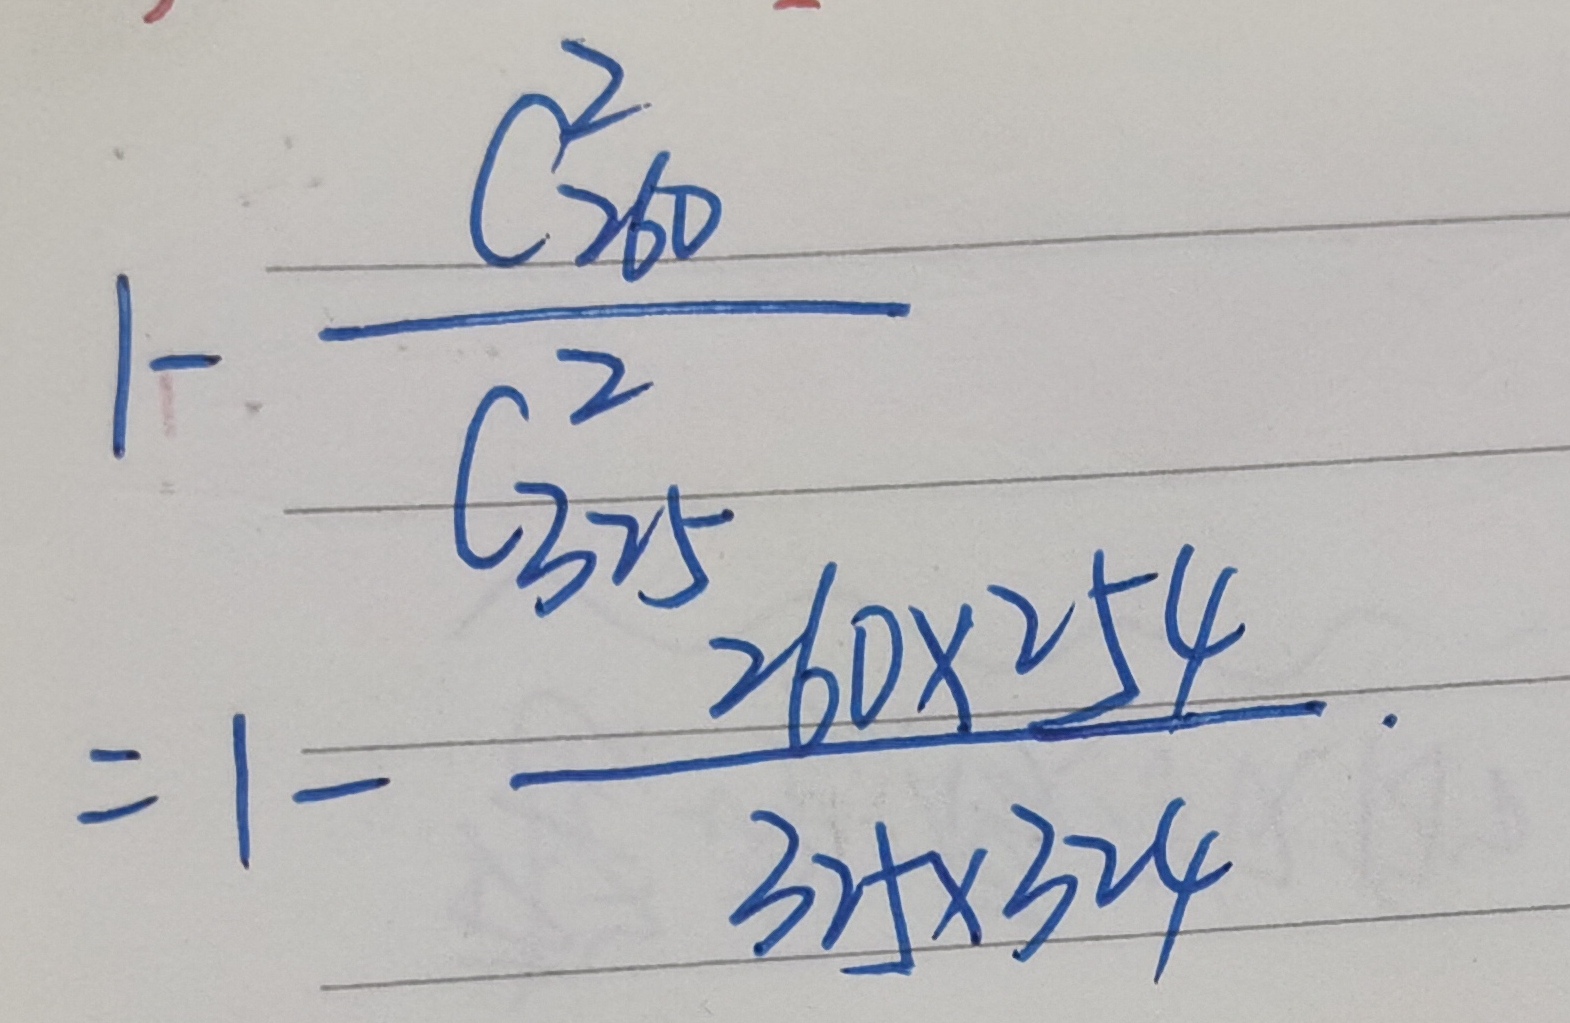 1 - \frac{C_{260}^{2}}{C_{325}^{2}}
= 1 - \frac{260 \times 254}{325 \times 324}.